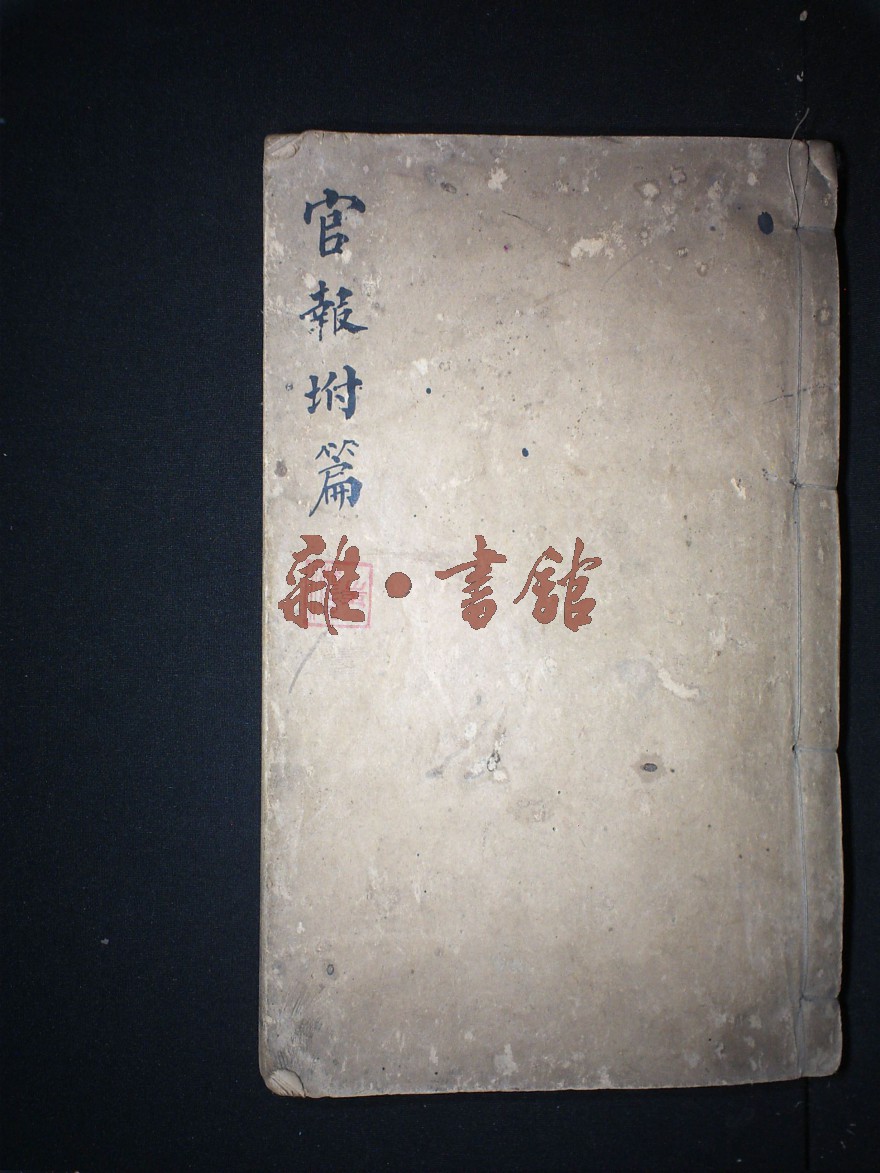 官報坿篇
雜·書館